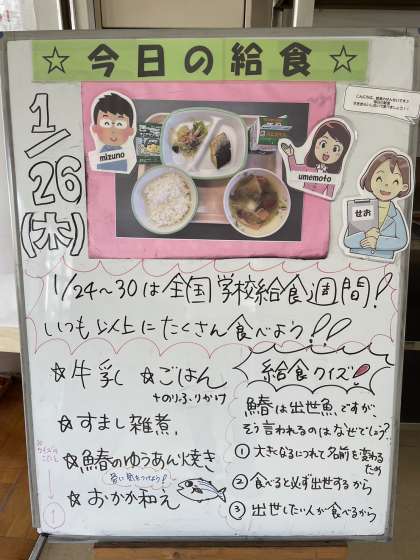 ☆ 今日の給食 ☆
1/26(木)
mizuno
umemoto
せお
1/24〜30は全国学校給食週間!
いつも以上にたくさん食べよう!!
☆牛乳 ☆ごはん
+のりふりかけ
☆すまし雑煮
☆鰆のゆうあん焼き
☆おかか和え
給食クイズ!
鰆は出世魚ですが、
そう言われるのはなぜでしょう?
① 大きくなるにつれて名前を変わる
ため
② 食べると必ず出世するから
③ 出世したい人が食べるから
※
クイズの
こたえ
↓
①